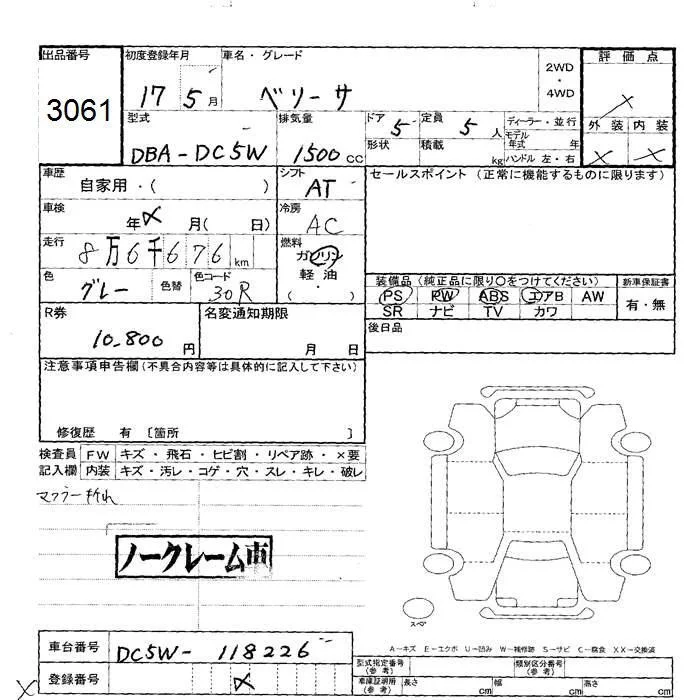 出品番号
3061
初度登録年月
17 5月
車名・グレード
ベリーサ
2WD
・
4WD
評価点
×
外装 内装
× ×
型式
DBA-DC5W
排気量
1500cc
ドア 5
形状
定員 5人
積載 kg
ディーラー・並行
モデル年式 年
ハンドル 左・右
車歴
自家用・( )
シフト
AT
セールスポイント (正常に機能するものに限ります)
車検
年 × 月( 日)
冷房
AC
走行
8万6千676km
燃料
ガソリン
軽油
( ・ )
色
グレー
色替
色コード
30R
装備品 (純正品に限り○をつけてください)
PS PW ABS エアB AW
SR ナビ TV カワ
新車保証書
有・無
R券
10-800円
名変通知期限
月 日
後日品
注意事項申告欄(不具合内容等は具体的に記入して下さい)
修復歴 有 〔箇所 〕
検査員記入欄
FW キズ・飛石・ヒビ割・リペア跡・×要
内装 キズ・汚レ・コゲ・穴・スレ・キレ・破レ
マフラー折れ
ノークレーム車
スペア
A-キズ E-エクボ U-凹み W-補修跡 S-サビ C-腐食 XX-交換済
車台番号
DC5W-118226
登録番号
×
×
型式指定番号(参考)
類別区分番号(参考)
車庫証明所(参考)
長さ cm
幅 cm
高さ cm